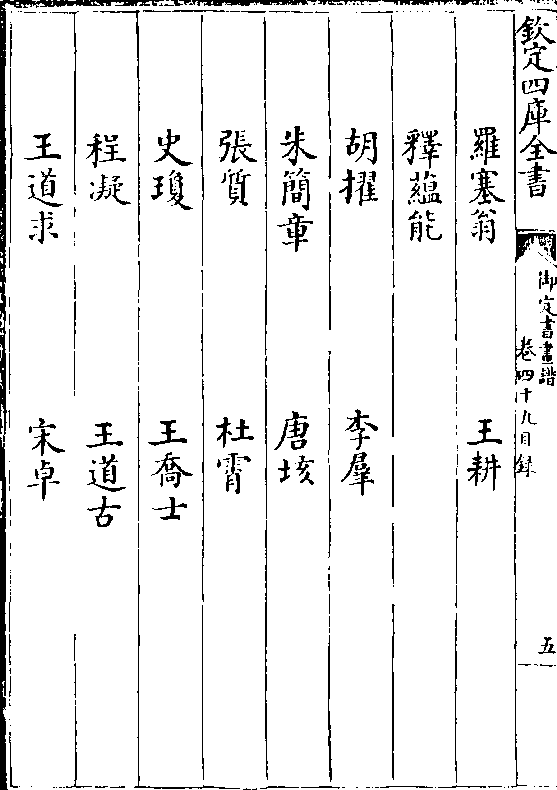 欽定四庫全書
御定書畫譜
卷四十九目録
五
羅塞翁 王耕
釋藴能
胡擢 李羣
朱簡章 唐垓
張質 杜霄
史瓊 王喬士
程凝 王道古
王道求 宋卓